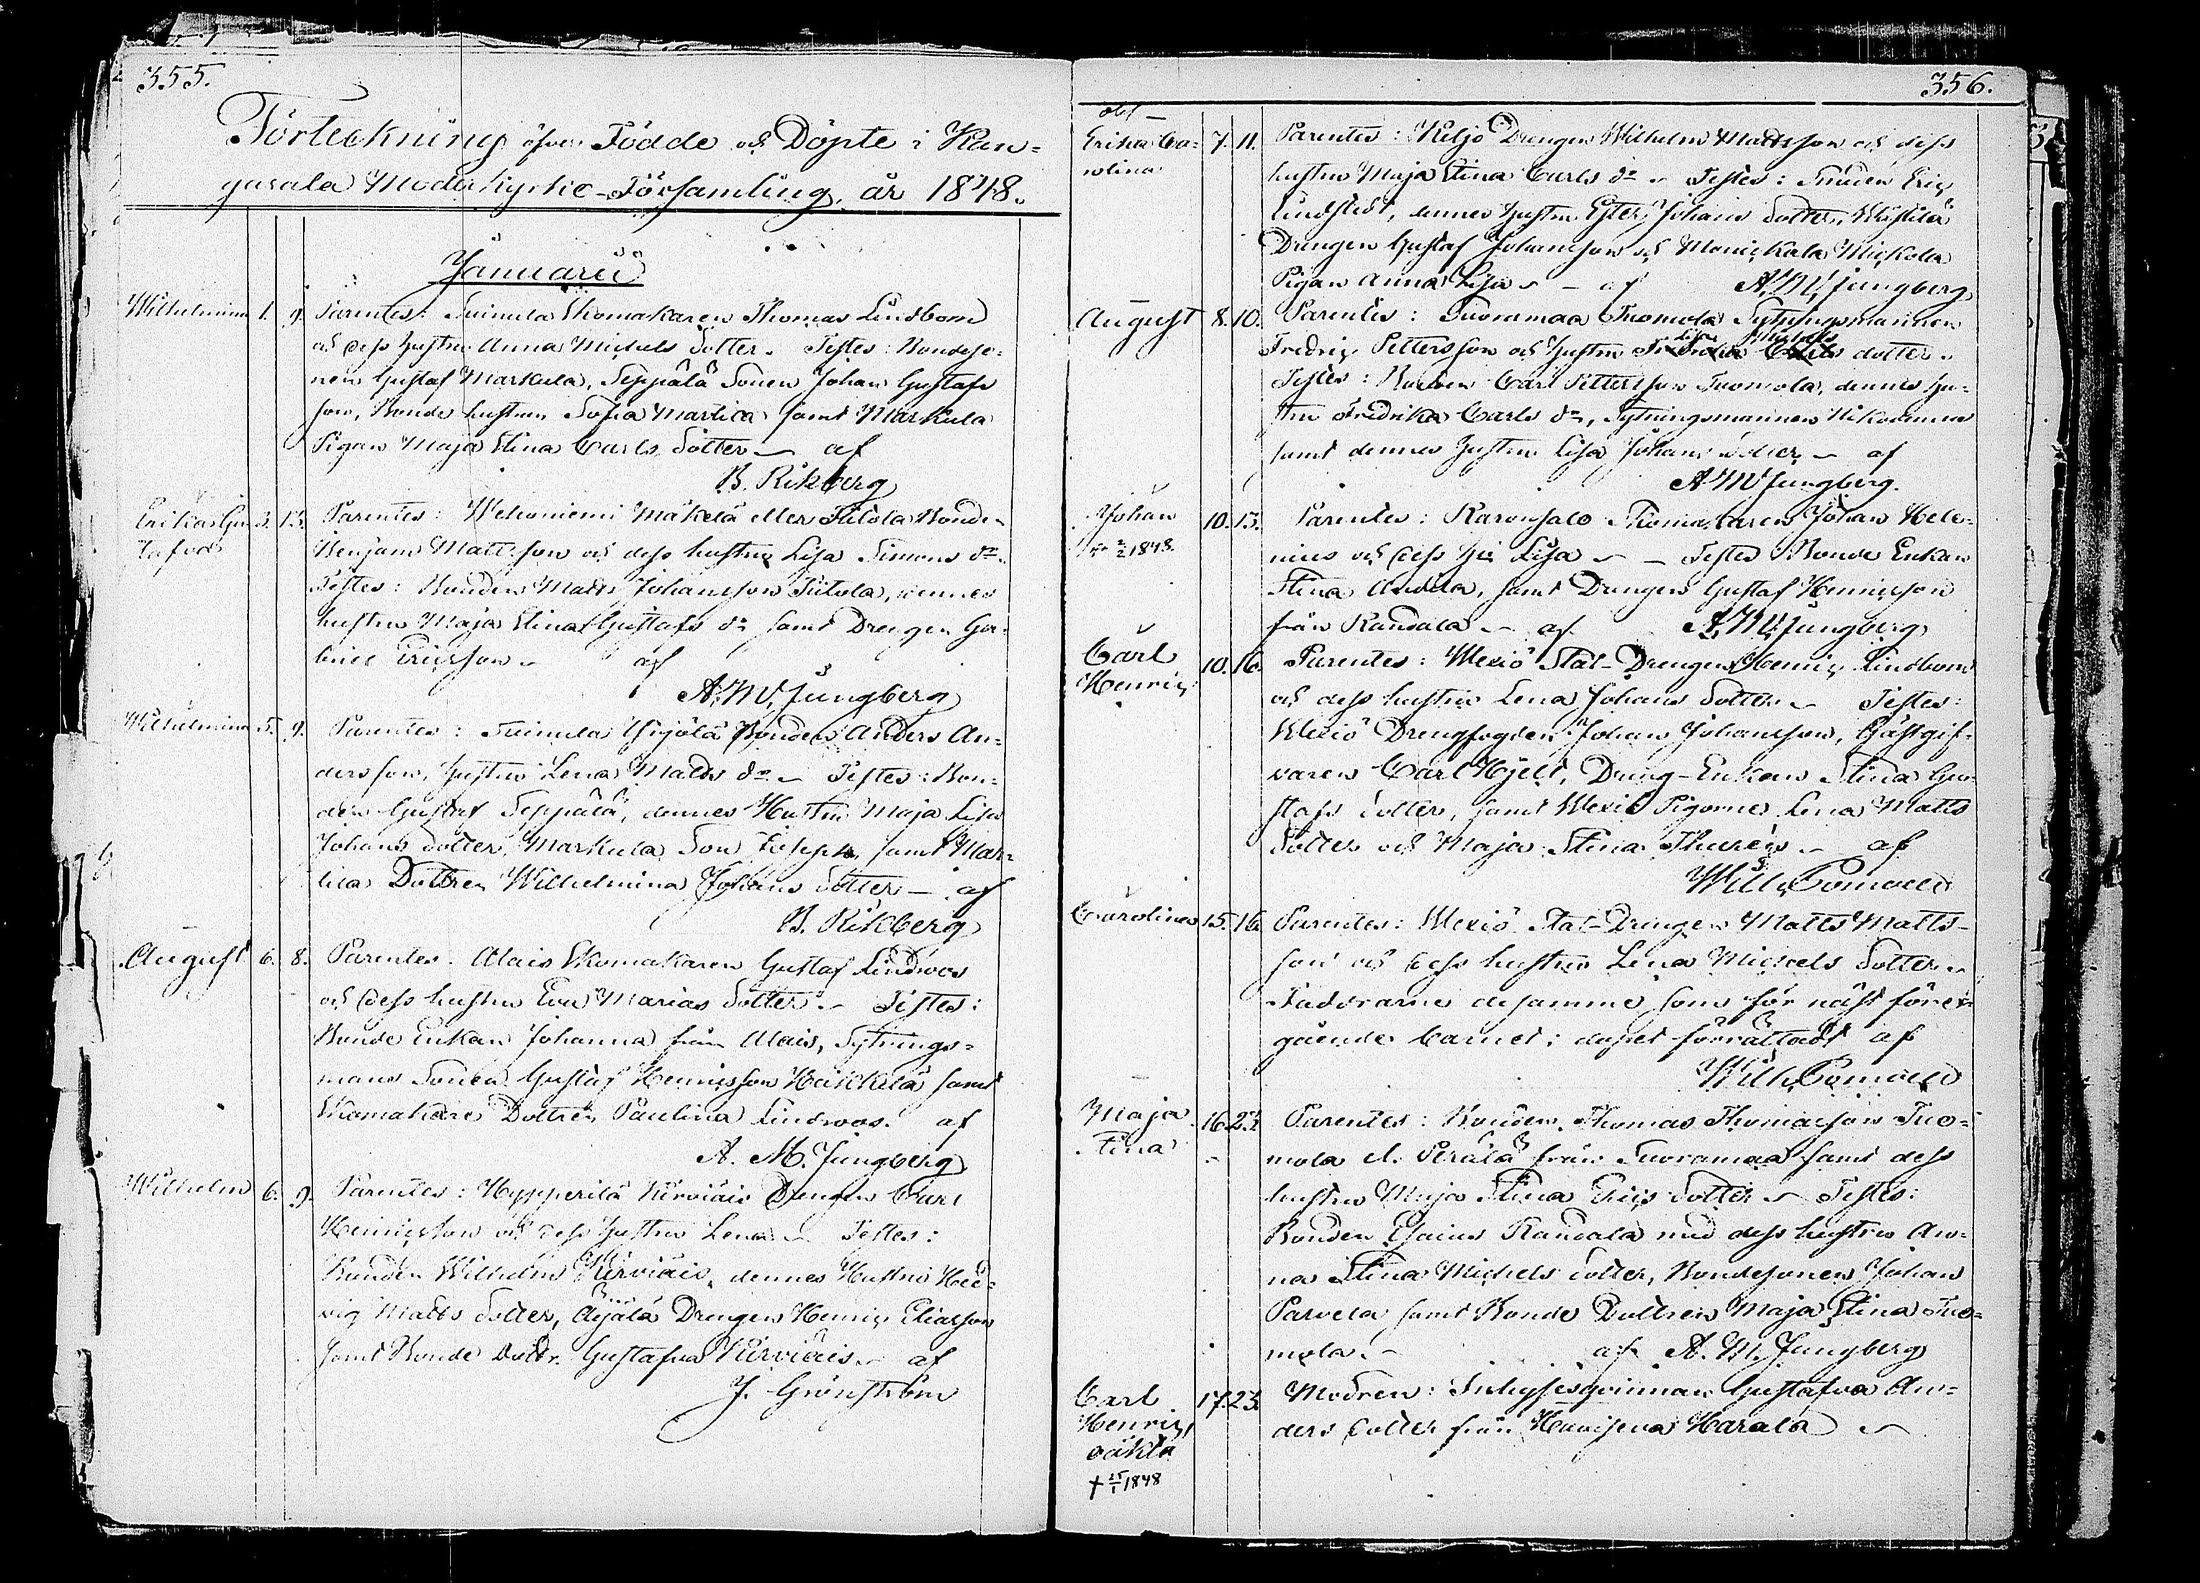 355.
Förteckning öfver Födde och Döpte i Kan=
gasala Moderkyrko-Församling, år 1848.
Januarii
Wilhelmina 1. 9. Parentes: Suinula Skomakaren Thomas Lindbom
och dess hustru Anna Michels dotter. Testes: Bondeso=
nen Gustaf Markula, Seppälä Sonen Johan Gustafs
son, Bonde hustrun Sofia Martica samt Markula
Pigan Maja Stina Carls dotter — af
B. Rikberg
Erika Gu= 3. 13. Parentes: Wehoniemi Mäkelä eller Bonden
stafva Benjam Mattsson och dess hustru Lisa Simons dr.
Testes: Bonden Matts Johansson, dennes
hustru Maja Stina Gustafs dr samt Drengen Ga=
briel Ericsson. af
A. W. Jungberg
Wilhelmina 5. 9. Parentes: Suinula Yrjölä Bonden Anders An=
dersson, hustru Lena Matts dr. — Testes: Bon=
den Gustaf Seppälä, dennes Hustru Maja Lisa
Johans dotter, Markula Son samt Mar=
tica Dottren Wilhelmina Johans dotter — af
B. Rikberg
August 6. 8. Parentes: Alais Skomakaren Gustaf Lindroos
och dess hustru Eva Marias dotter. — Testes:
Bonde Enkan Johanna från Alais, Sytnings=
mans Sonen Gustaf Henricsson Heickkilä samt
Skomakare Dottren Paulina Lindroos. af
A. M. Jungberg
Wilhelm 6. 9. Parentes: Hypperilä Kirviäis Drengen Carl
Henricsson och dess hustru Lena — Testes:
Bonden Wilhelm Kirviäis, dennes Hustru Hed=
vig Matts dotter, Äijälä Drengen Henric Eliasson
samt Bonde Dottr. Gustafva Kirviäis. af
J. Grönström
356.
Erika Ca= 7. 11. Parentes: Keljo Drengen Wilhelm Mattsson och dess
rolina hustru Maja Stina Carls dr — Testes: Eric
Lindstedt, dennes hustru Ester Johans dotter,
Drengen Gustaf Johansson och
Pigan Anna Lisa — af A. W. Jungberg
August 8. 10. Parentes: Suoramaa Tuomola Sytningsmannen
Fredric Pettersson och hustru Lisa Michels dotter.
Testes: Bonden Carl Pettersson Tuomola, dennes hu=
stru Fredrika Carls dr, Sytningsmannen
samt dennes hustru Lisa Johans dotter — af
A. W. Jungberg.
Johan 10. 13. Parentes: Skomakaren Johan Hele=
† 2/2 1848. nius och dess Lisa — Testes Bonde Enkan
Stina samt Drengen Gustaf Henricsson
från Randala — af A. W. Jungberg
Carl 10. 16. Parentes: Wexiö Stat-Drengen Henric Lindbom
Henric och dess hustru Lena Johans dotter — Testes:
Wexiö Drengfogden Johan Johansson, Gästgif=
varen Carl Hjelt, Dreng-Enkan Stina Gu=
stafs dotter, samt Wexiö Pigorne Lena Matts
dotter och Maja Stina Thurén. — af
Wilh. Pomoell
Carolina 15. 16. Parentes: Wexiö Stat-Drengen Matts Matts=
son och dess hustru Lena Michels dotter.
Faddrarne desamme som för näst före=
gående barnet; dopet förrättadt af
Wilh. Pomoell
Maja 16. 23. Parentes: Bonden Thomas Thomasson Tuo=
Stina mola l. Perälä från Suoramaa samt dess
hustru Maja Stina Erics dotter — Testes:
Bonden Esaias Randala med dess hustru An=
na Stina Michels dotter, Bondesonen Johan
Parvela samt Bonde Dottren Maja Stina Tuo=
mola. — af A. M. Jungberg
Carl 17. 23. Modren: Inhysesqvinnan Gustafva An=
Henric, ders dotter från Harala —
oäkta
† 25/1 1848